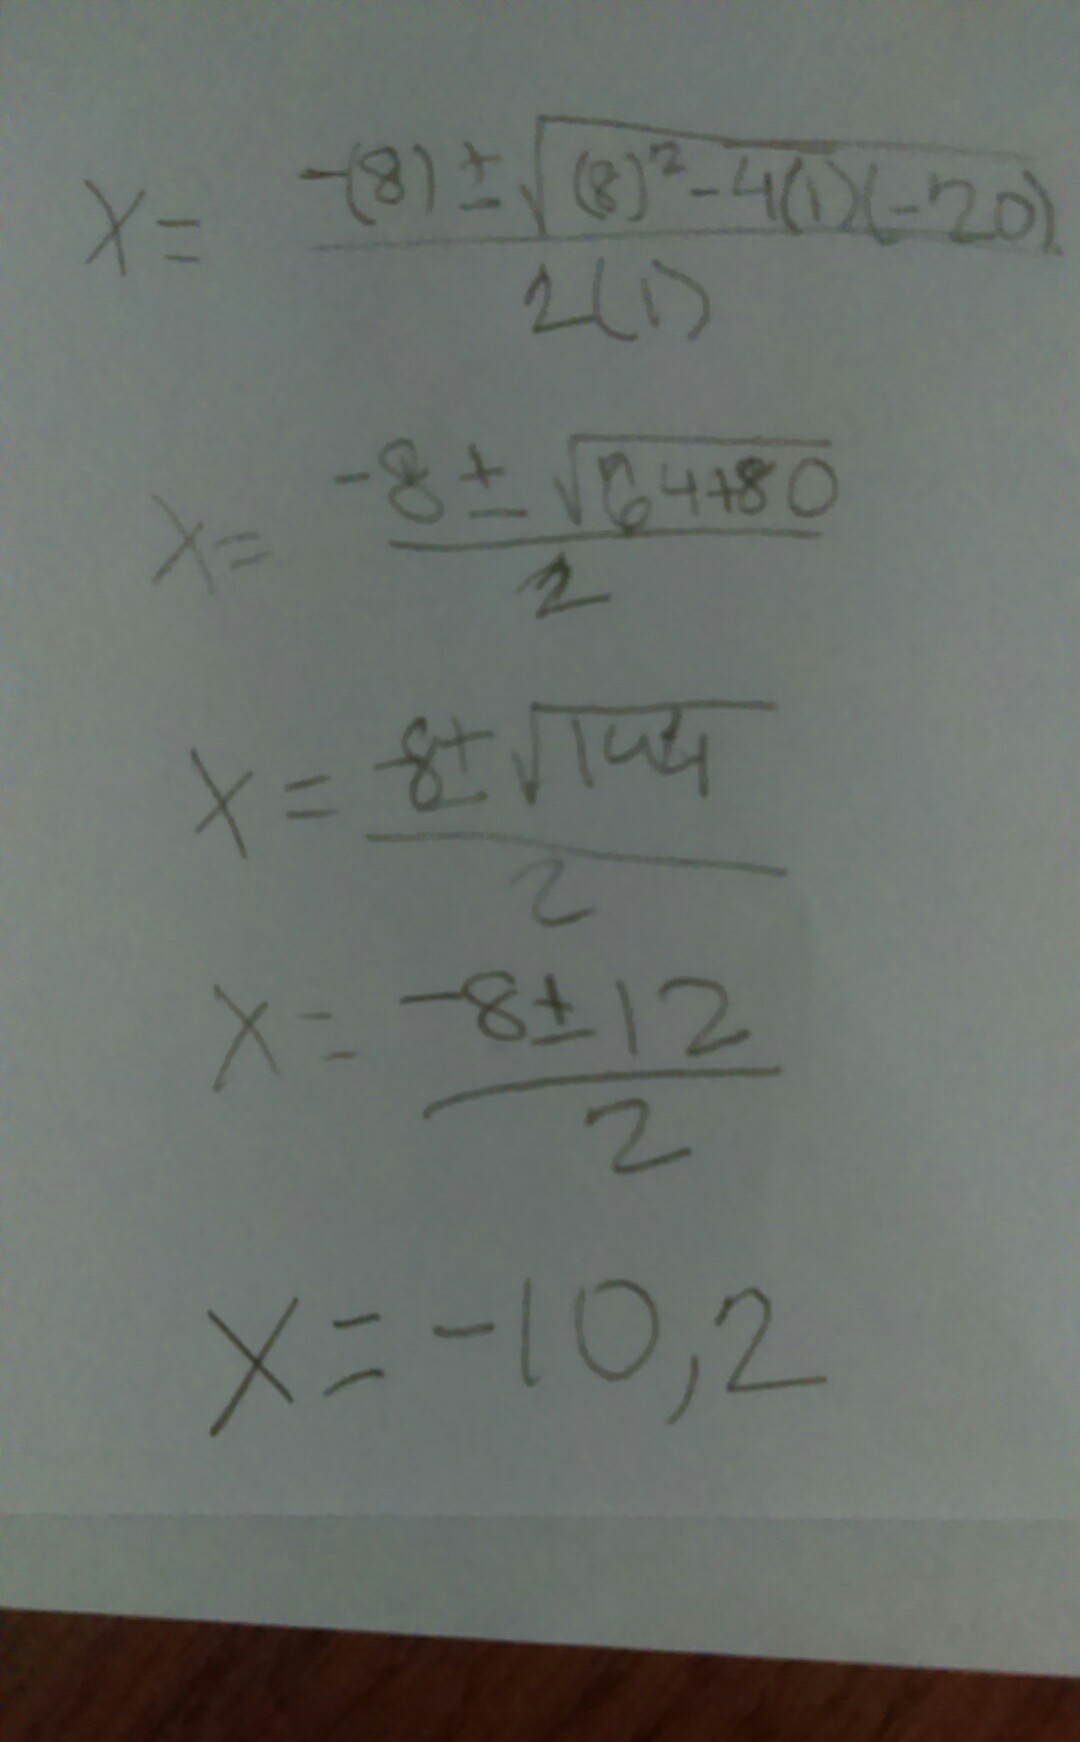 x = -(8) ± √(8)² - 4(1)(-20) / 2(1)
x = -8 ± √64+80 / 2
x = -8 ± √144 / 2
x = -8 ± 12 / 2
x = -10, 2